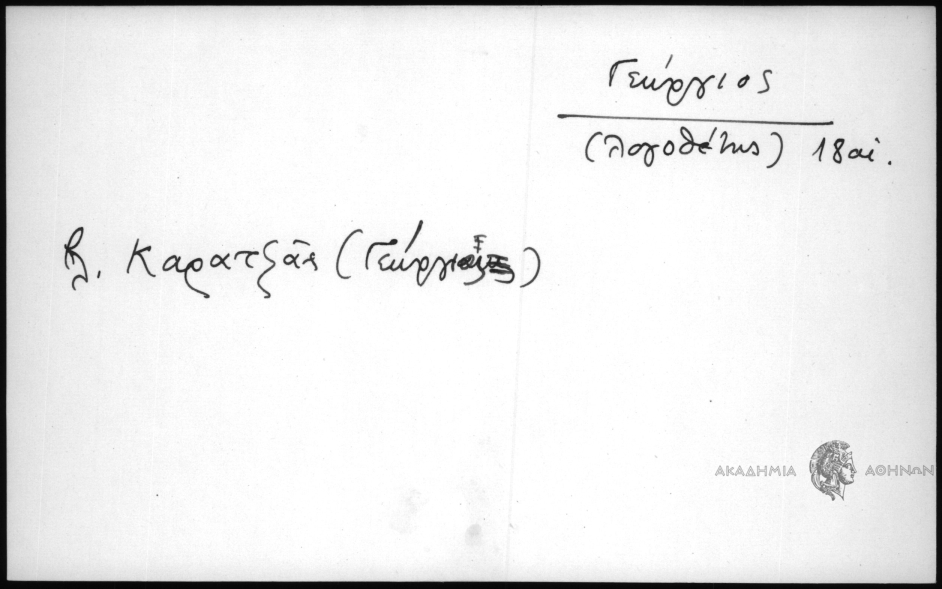 Γεώργιος
(λογοθέτης) 18 αἰ.
βλ. Καρατζᾶς (Γεώργιος)
ΑΚΑΔΗΜΙΑ ΑΘΗΝΩΝ